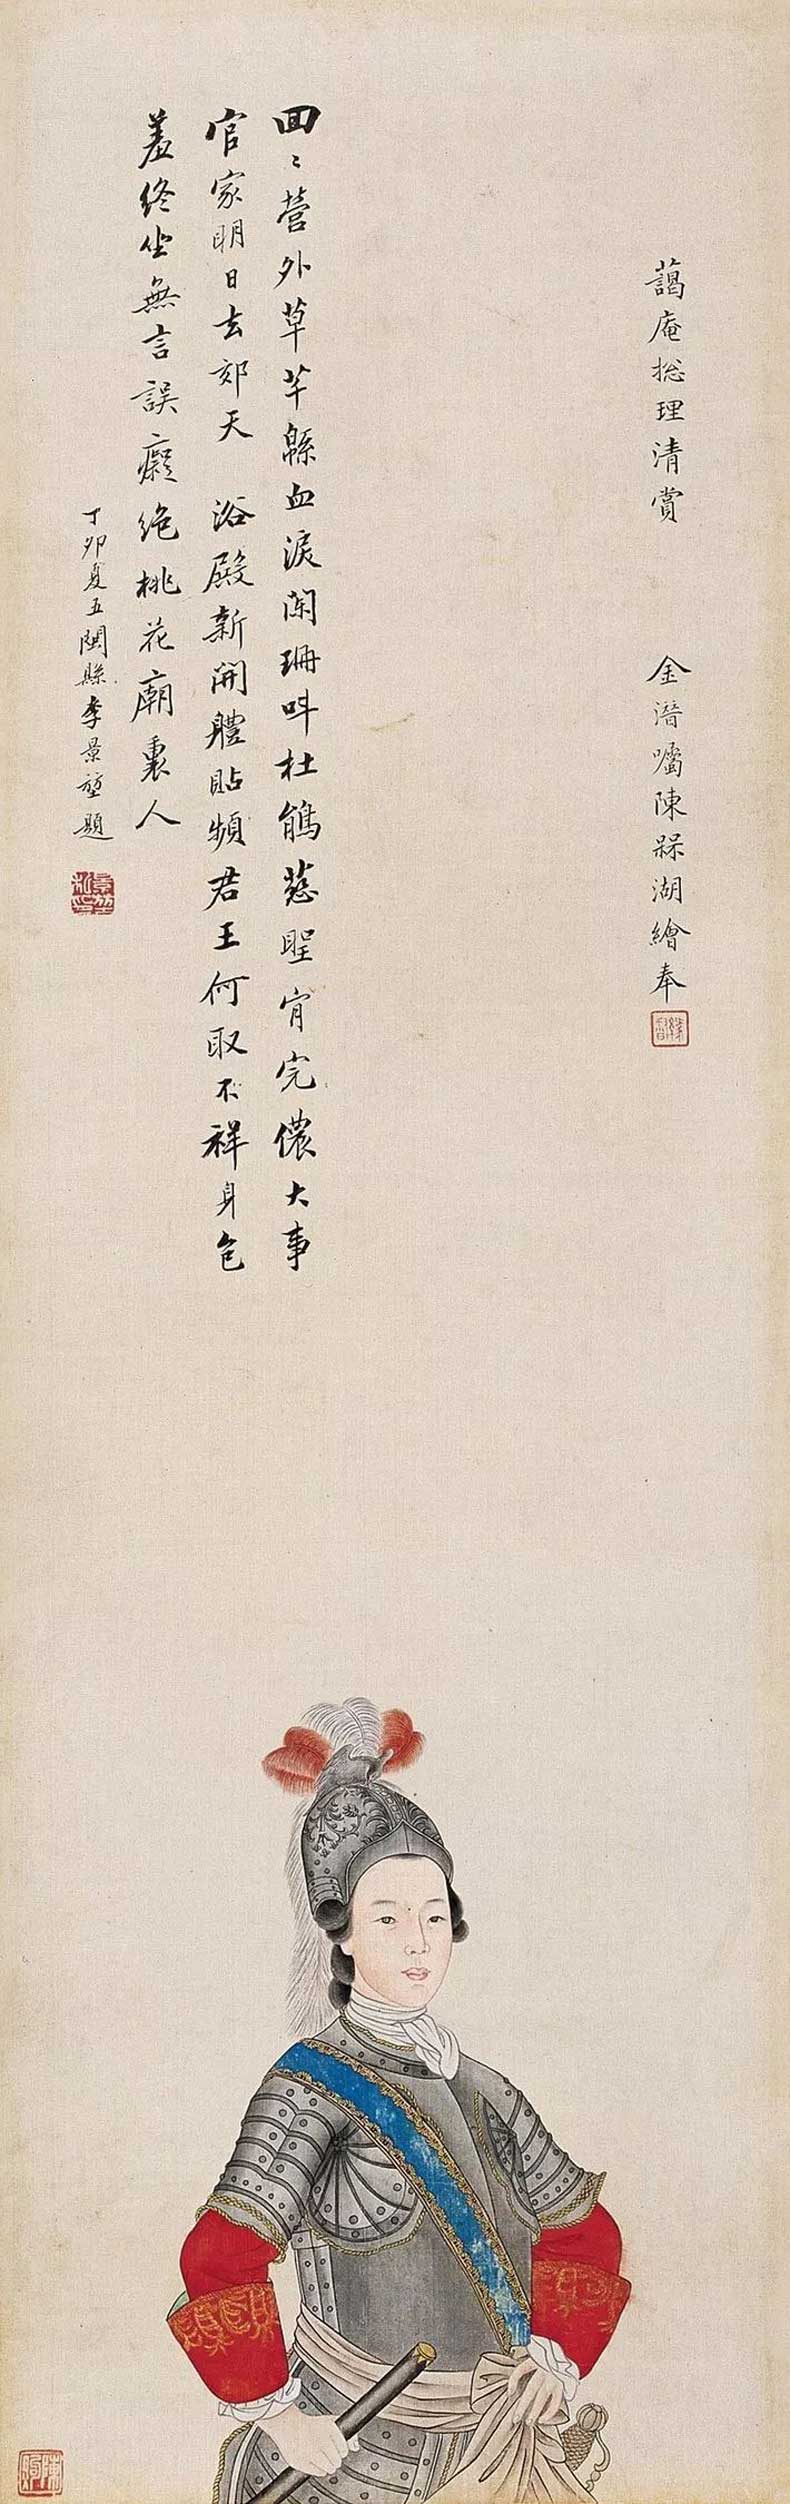 藹庵總理清賞　金潛囑陳槑湖繪奉
回〻營外草芊緜血淚闌珊叫杜鵑慈聖宵完儂大事
官家明日去郊天　浴殿新開體貼頻君王何取不祥身包
羞終坐無言誤癡絕桃花廟裏人
丁卯夏五閩縣李景堃題